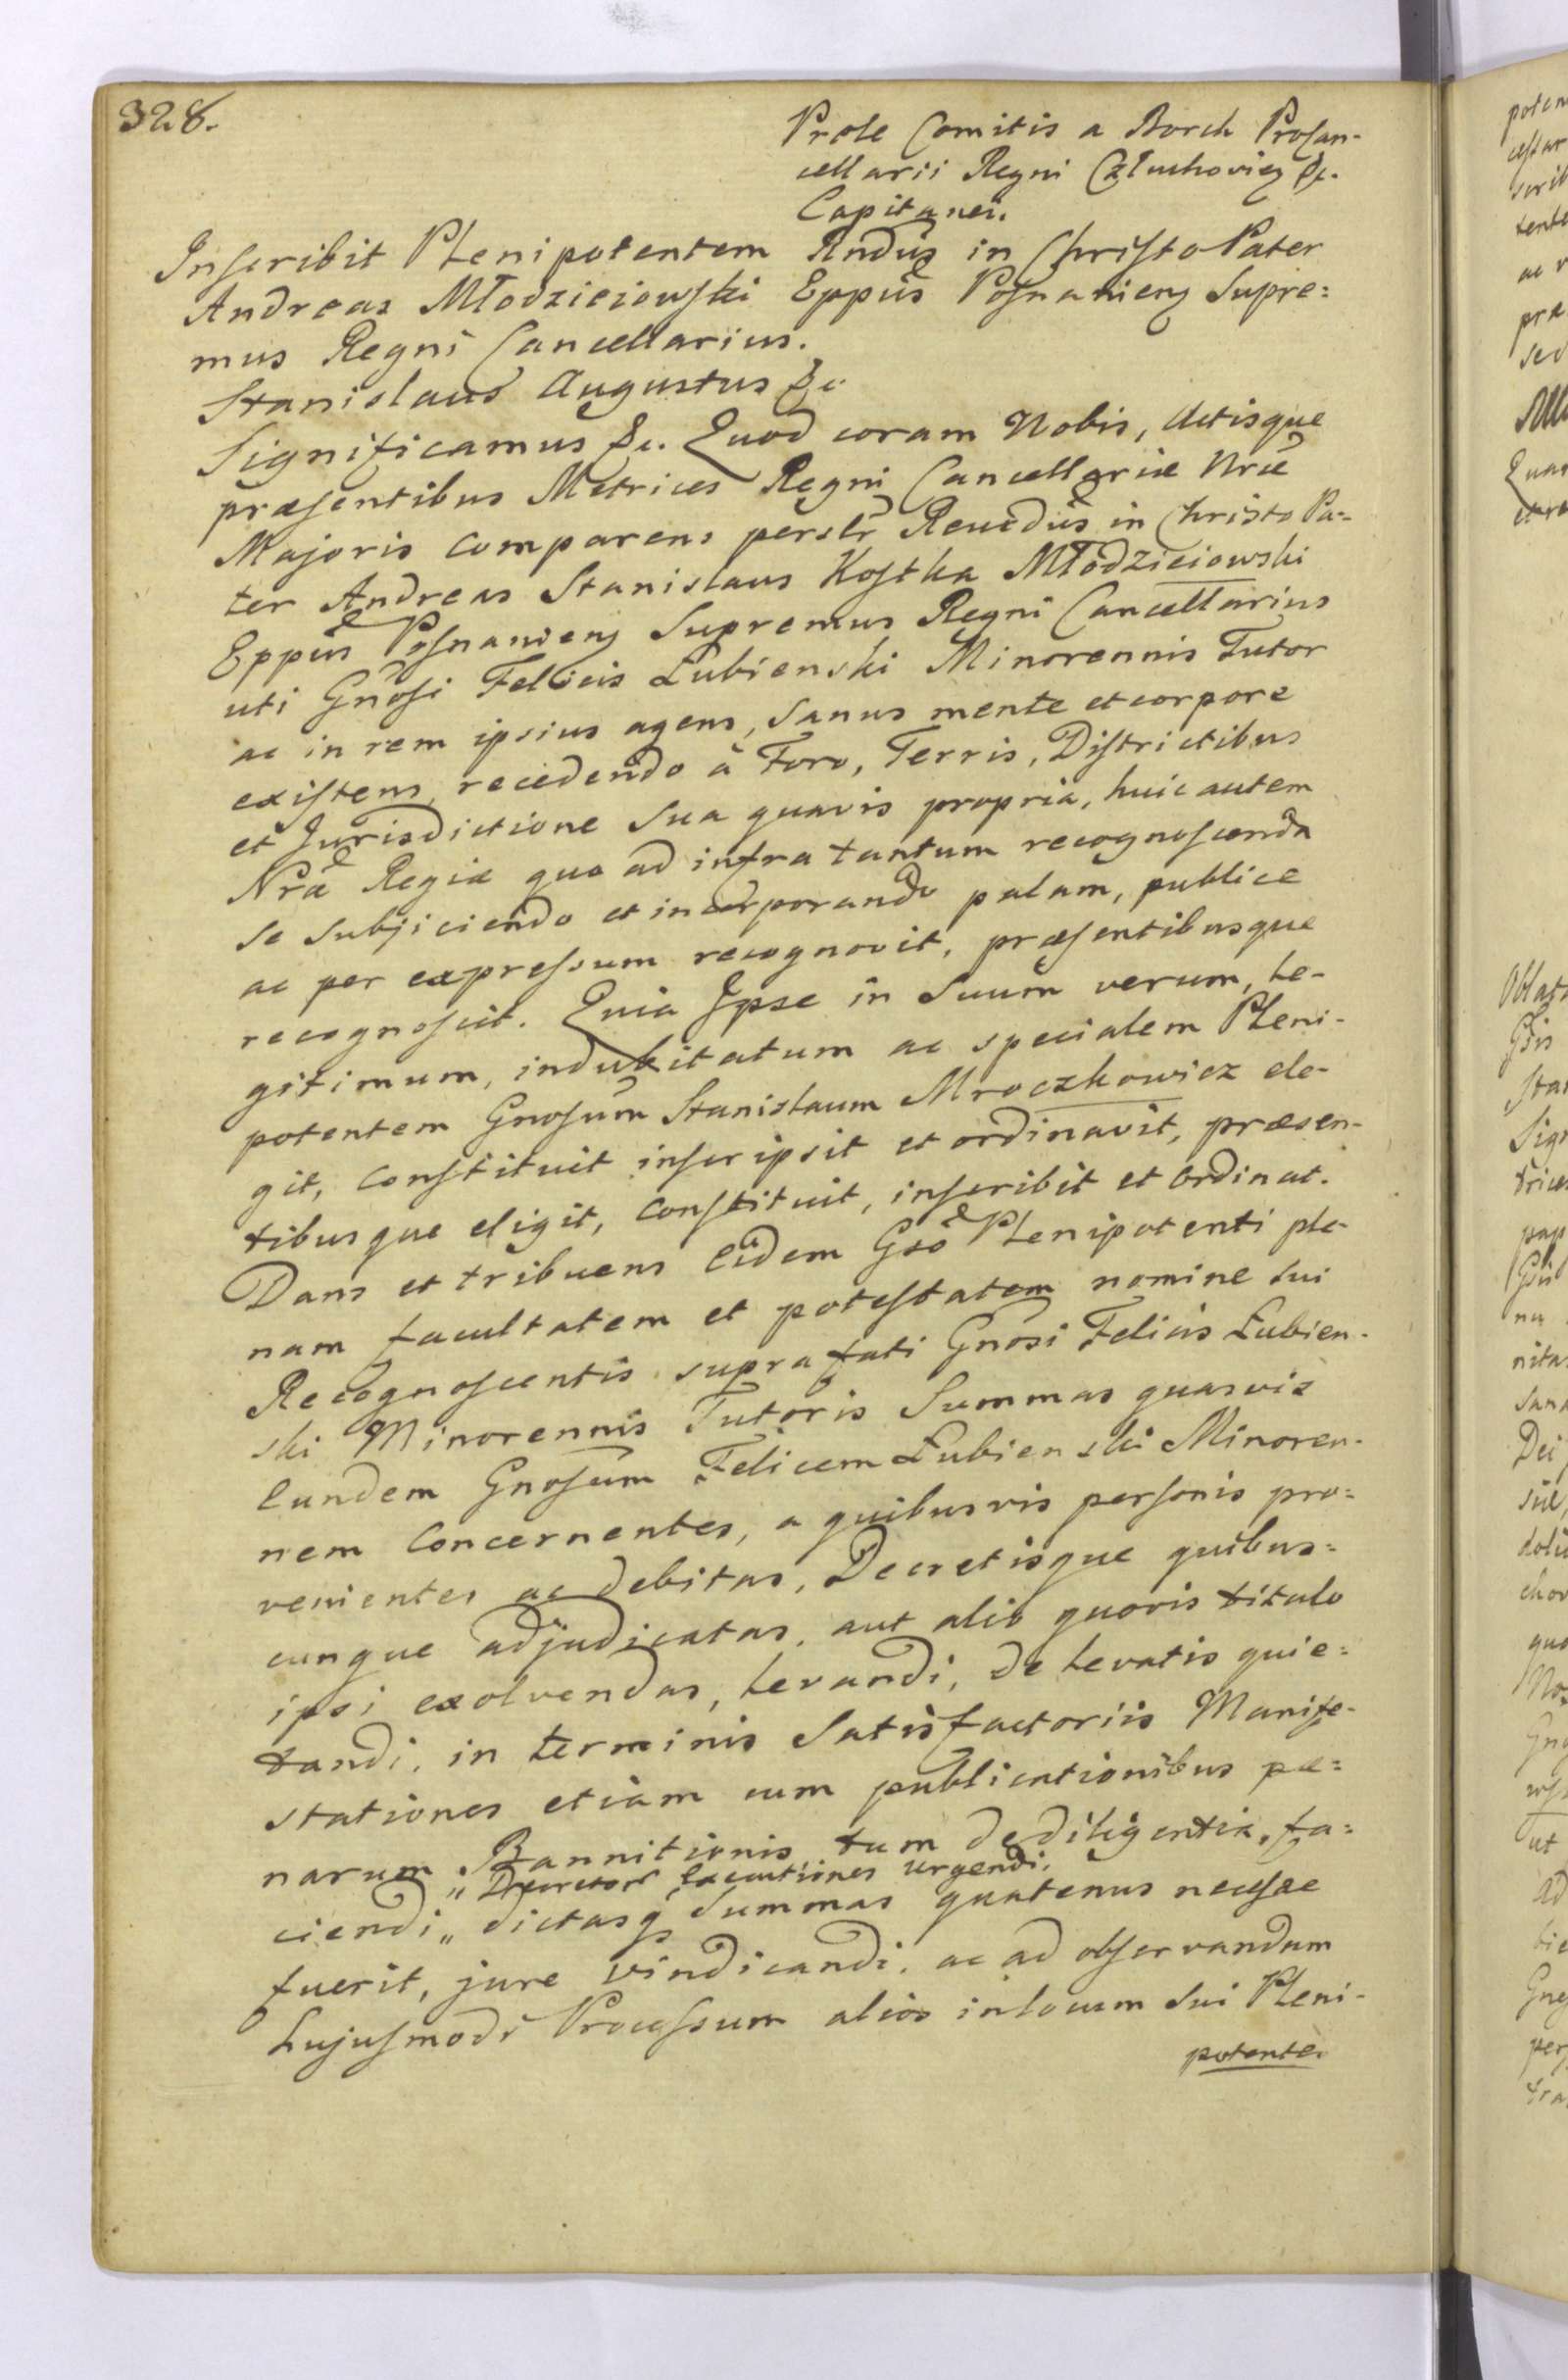 328.
Prole Comitis a Borch Procan-
cellarii Regni Człuchovien &c.
Capitanei.
Inscribit Plenipotentem Rndus in Christo Pater
Andreas Młodzieiowski Eppus Posnanien Supre=
mus Regni Cancellarius.
Stanislaus Augustus &c.
Significamus &c. Quod coram Nobis, Actisque
præsentibus Metrices Regni Cancellariæ Nræ
Majoris comparens perslr Revedus in Christo Pa-
ter Andreas Stanislaus Kostka Młodzieiowski
Eppus Posnanien Supremus Regni Cancellarius
uti Gnosi Felicis Łubienski Minorennis Tutor
ac in rem ipsius agens, sanus mente et corpore
existens, recedendo à Foro, Terris, Districtibus
et Jurisdictione sua quavis propria, huic autem
Nræ Regiæ quo ad infra tantum recognoscenda
se subjiciendo et incorporando palam, publice
ac per expressum recognovit, præsentibusque
recognoscit. Quia Ipse in suum verum, le-
gitimum, indubitatum ac specialem Pleni-
potentem Gnosum Stanislaum Mroczkowicz ele-
git, constituit inscripsit et ordinavit, præsen-
tibusque eligit, constituit, inscribit et ordinat.
Dans et tribuens eidem Gso Plenipotenti ple-
nam facultatem et potestatem nomine sui
Recognoscentis suprafati Gnosi Felicis Łubien-
ski Minorennis Tutoris Summas quasvis
eundem Gnosum Felicem Łubienski Minoren-
nem concernentes, a quibusvis personis pro=
venientes ac debitas, Decretisque quibus=
cunque adjudicatas, aut alio quovis titulo
ipsi exolvendas, levandi, de levatis quie=
tandi, in terminis satisfactoriis Manife-
stationes etiam cum publicationibus pæ=
narum Bannitionis tum de diligentia, fa=
„ Decretor executiones urgendi.
ciendi „ dictasq summas quatenus necesse
fuerit, jure vindicandi, ac ad observandum
hujusmodi Processum alios in locum sui Pleni-
potente.